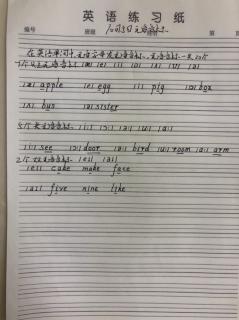 英语练习纸
编号 班级
在英语单词中元音字母发元音音标，元音音标一共20个
|æ| |e| |ɪ| |ɒ| |ʌ| |ʊ| |ə|
|æ| apple |e| egg |ɪ| pig |ɒ| box
|ʌ| bus |ə| sister
5个长元音音标 |iː| |ɔː| |ɜː| |uː| |ɑː|
|iː| see |ɔː| door |ɜː| bird |uː| room |ɑː| arm
2个双元音音标 |eɪ| |aɪ|
|eɪ| cake make face
|aɪ| five nine like